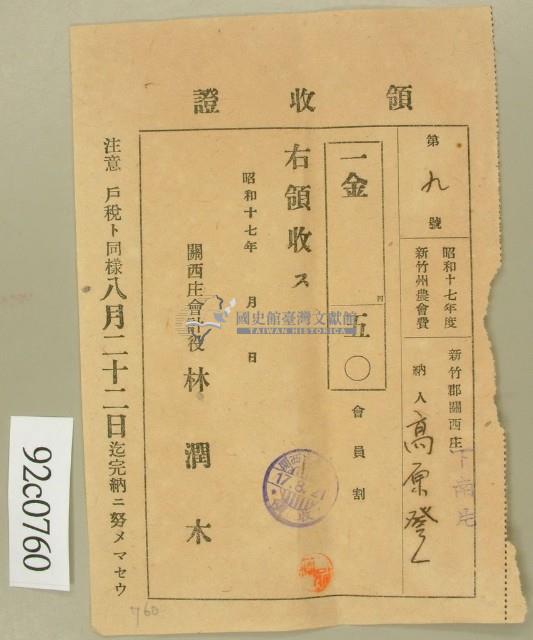 領收證
第九號
昭和十七年度
新竹州農會費
新竹郡關西庄
下南片
納人 高原登
一金
四
五〇
會員割
右領收ス
昭和十七年 月 日
關西庄會計役 林潤木
注意 戶稅ト同樣八月二十二日迄完納ニ努メマセウ
17.8.21
國史館臺灣文獻館
TAIWAN HISTORICA
92c0760
760